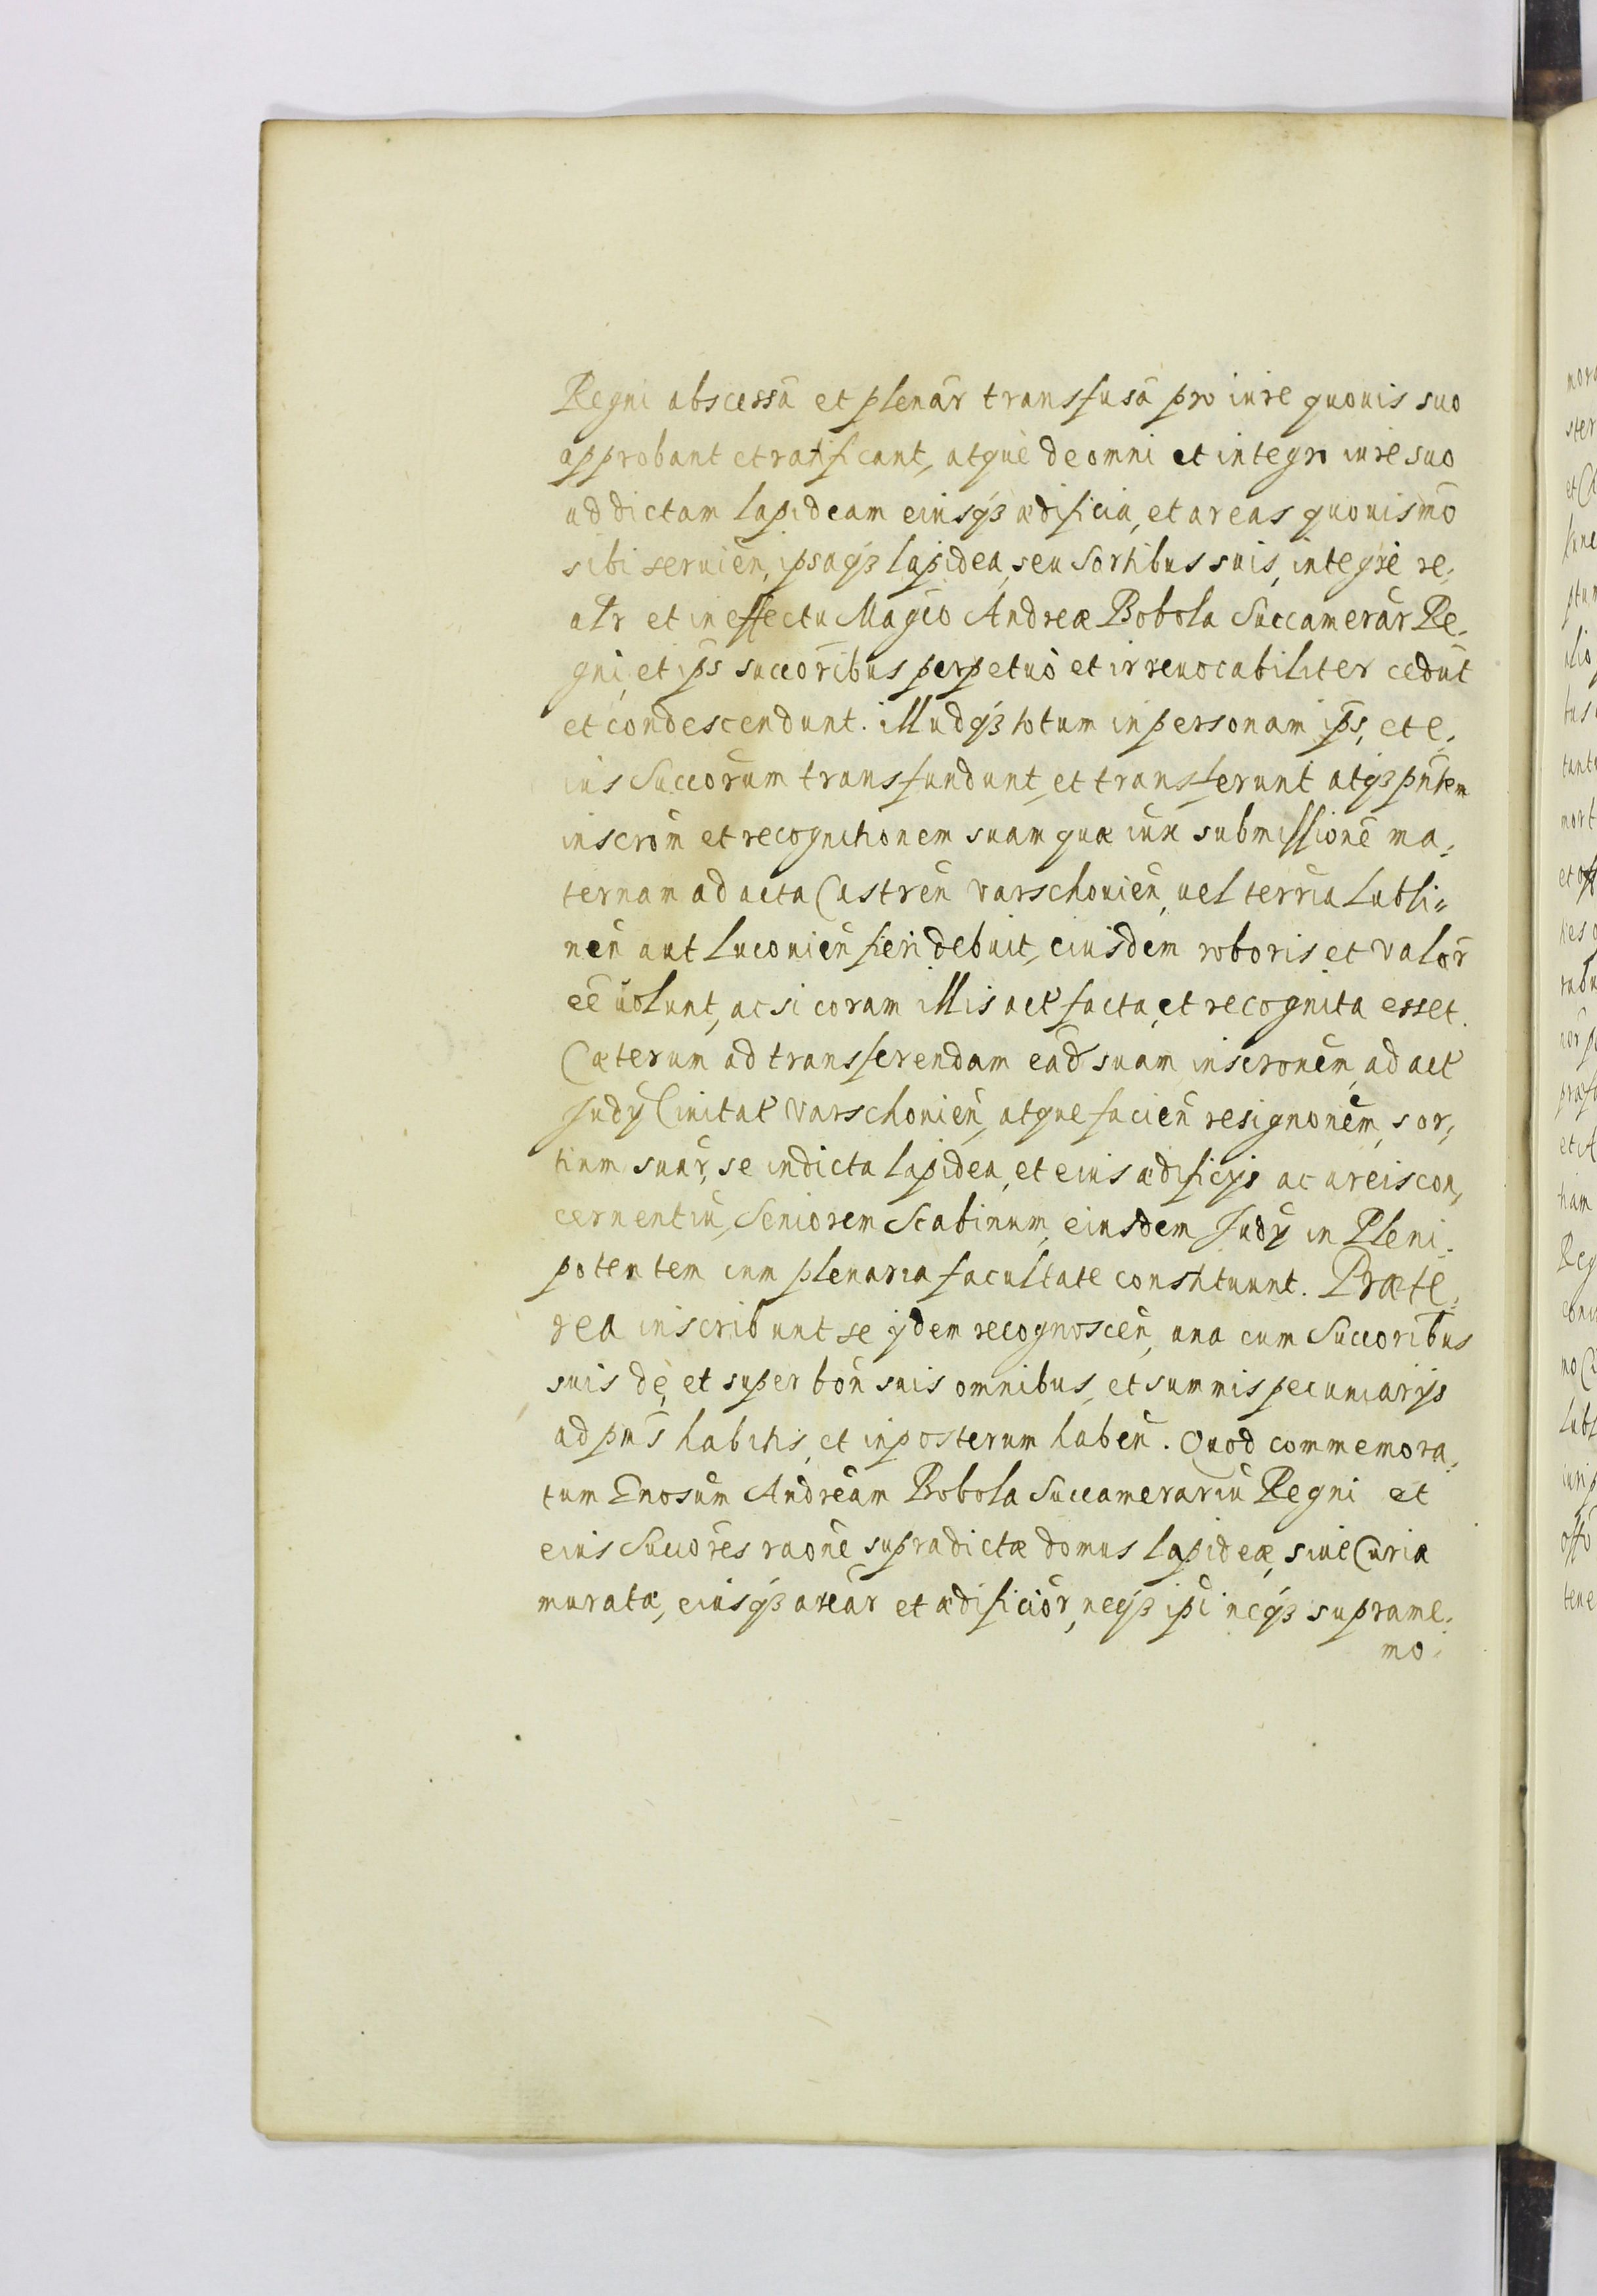 Regni abscessā et plenār transfusā pro iure quouis suo
approbant et ratificant, atque de omni et integro iure suo
ad dictam lapideam eiusqȝ ædificia, et areas quouismō
sibi seruieñ, ipsaqȝ lapidea, seu Sortibus suis, integrè re,
alr̄ et in effectu Magco Andreæ Bobola Succamerār Re,
gni, et ip̄s succōribus perpetuò et irreuocabiliter cedūt
et condescendunt. illudqȝ totum in personam ip̄s, et e,
ius Succōrum transfundunt, et transferunt atqȝ pn̄tem
inscrōm et recognitionem suam quæ iux submissionē ma,
ternam ad acta Castreñ Varschouieñ, uel terrīa Lubli=
neñ aut Luconieñ fieri debuit, eiusdem roboris et valōr
eē uolunt, ac si coram illis act facta, et recognita esset.
Cæterum ad transferendam eād suam inscrōnem, ad act
Judÿ Ciuitat Varschouieñ, atque facieñ resignōnem, sor,
tium suār, se in dicta lapidea, et eius ædificijs ac areis con,
cernentiū, Seniorem Scabinum, eiusdem Judÿ in Pleni,
potentem cum plenaria facultate constituunt. Præte,
rea inscribunt se ijdem recognosceñ, una cum Succōribus
suis de, et super boñ suis omnibus, et summis pecuniarijs
ad pn̄s habitis, et in posterum habeñ. Quod commemora,
tum Gnosum Andream Bobola Succamerariū Regni et
eius Succōres raōne supradictæ domus lapideæ, siue Curiæ
muratæ, eiusqȝ areār et ædificiōr, neqȝ ip̄i neqȝ suprame,
mo,